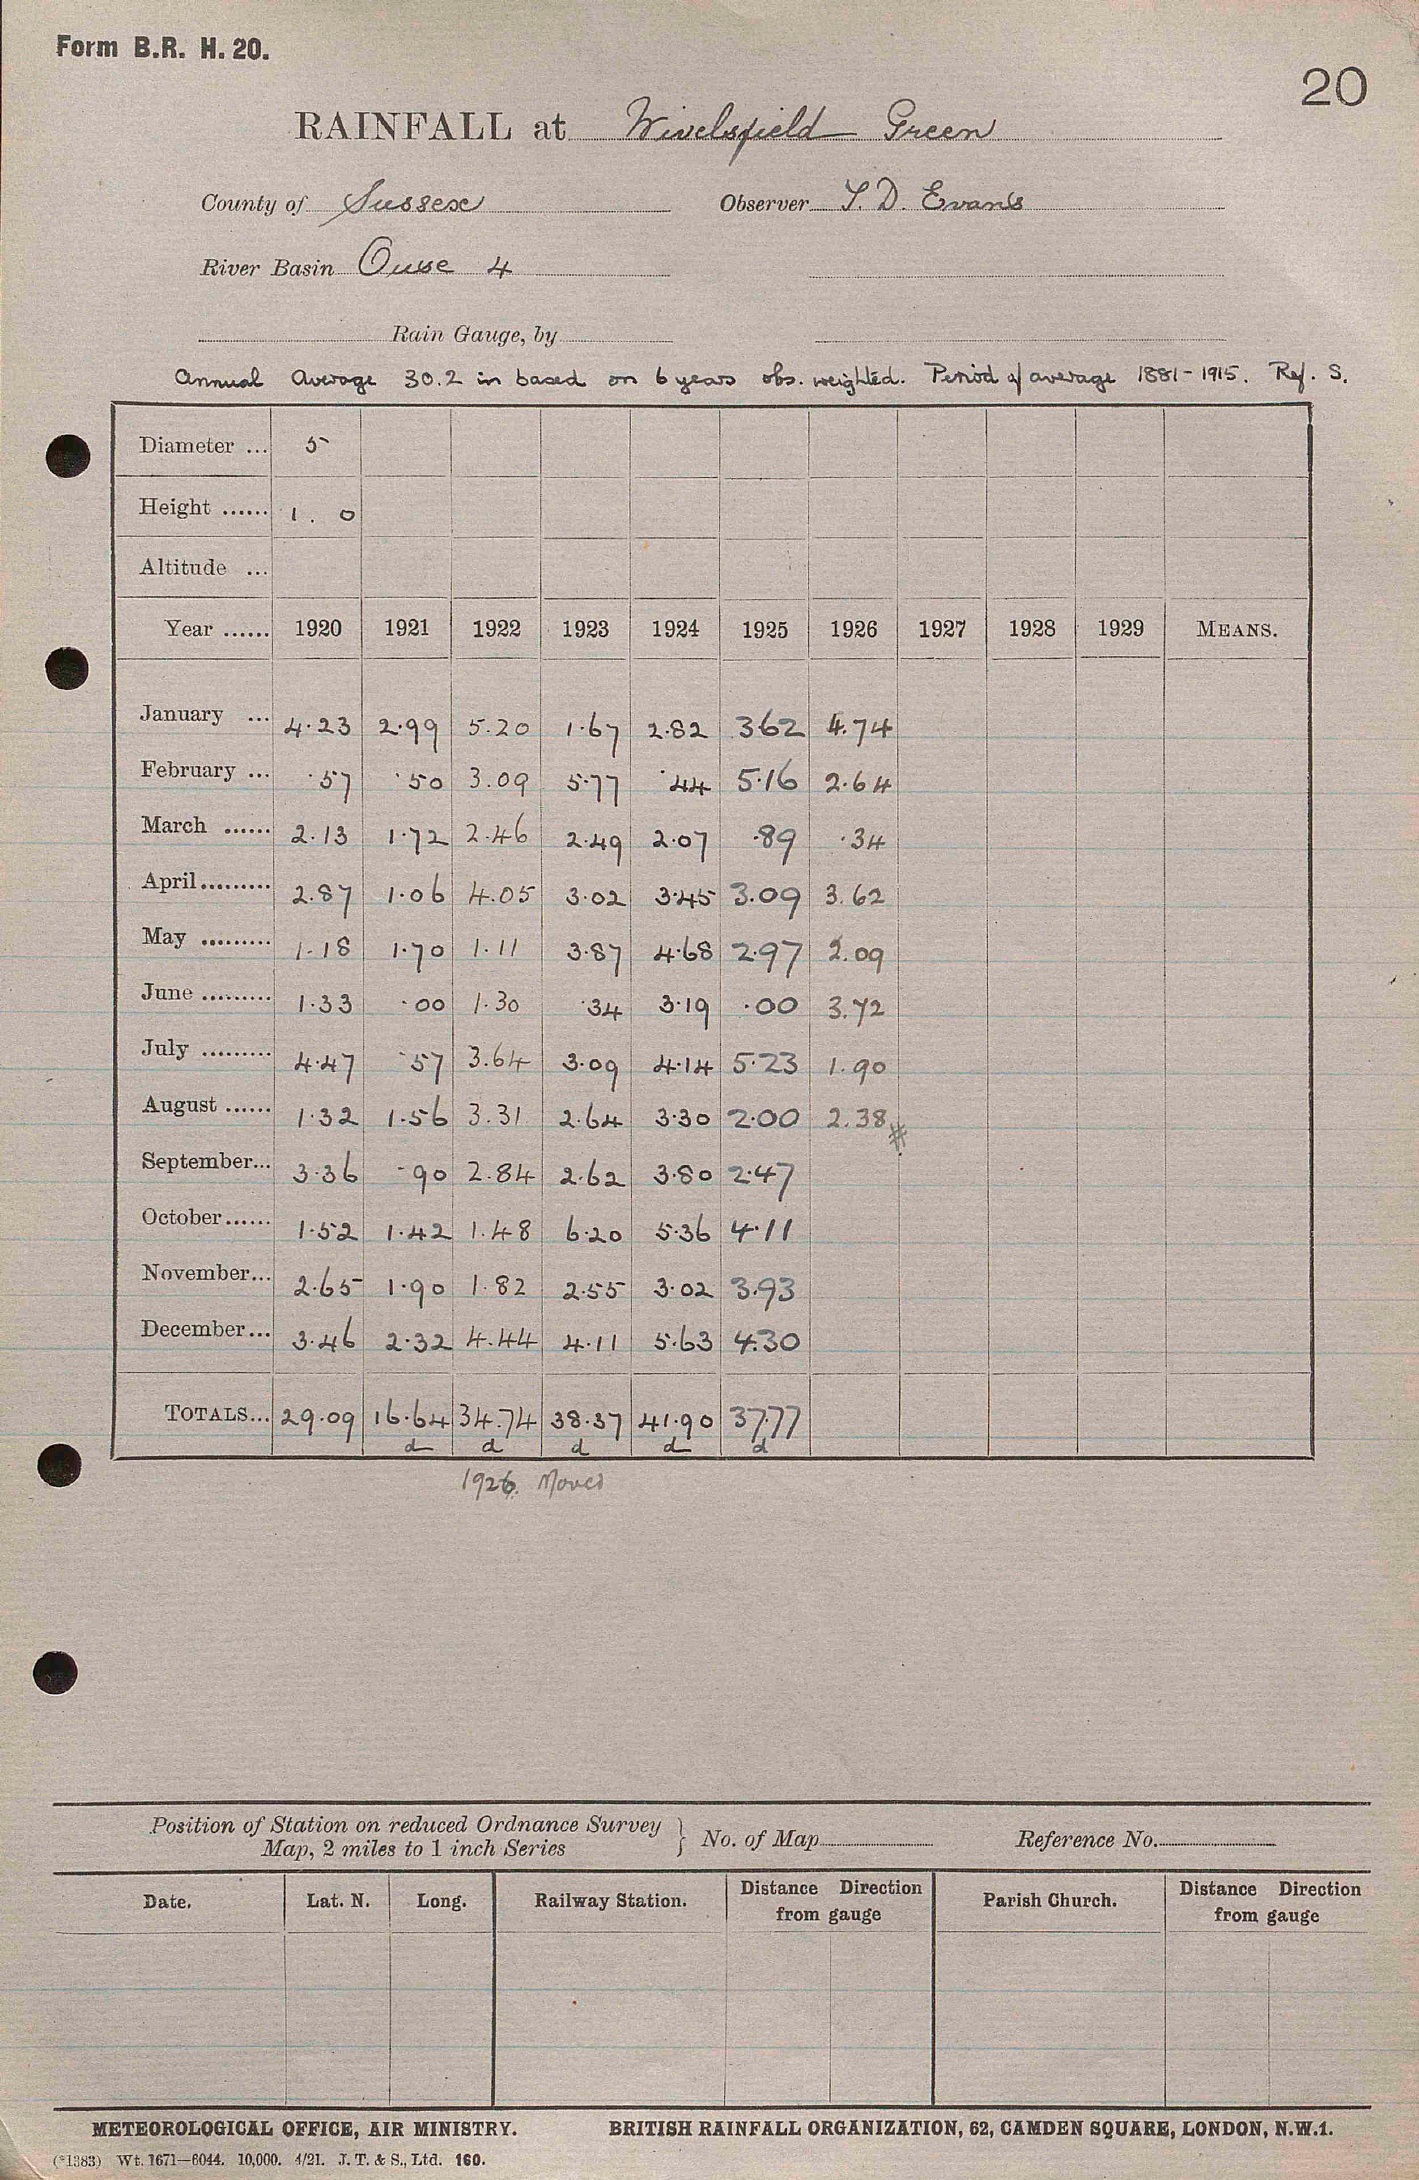 Form B.R. H. 20.
20
RAINFALL at Wivelsfield Green
County of Sussex Observer T. D. Evans
River Basin Ouse 4
Rain Gauge, by
Annual Average 30.2 in based on 6 years obs. weighted. Period of average 1881-1915. Ref. S.
Diameter ... 5
Height ...... 1 . 0
Altitude ...
Year ...... 1920 1921 1922 1923 1924 1925 1926 1927 1928 1929 MEANS.
January ... 4.23 2.99 5.20 1.67 2.82 3.62 4.74
February ... .57 .50 3.09 5.77 .44 5.16 2.64
March ...... 2.13 1.72 2.46 2.49 2.07 .89 .34
April......... 2.87 1.06 4.05 3.02 3.45 3.09 3.62
May ......... 1.18 1.70 1.11 3.87 4.68 2.97 2.09
June ......... 1.33 .00 1.30 .34 3.19 .00 3.72
July ......... 4.47 .57 3.64 3.09 4.14 5.23 1.90
August ...... 1.32 1.56 3.31 2.64 3.30 2.00 2.38 #
September... 3.36 .90 2.84 2.62 3.80 2.47
October...... 1.52 1.42 1.48 6.20 5.36 4.11
November... 2.65 1.90 1.82 2.55 3.02 3.93
December... 3.46 2.32 4.44 4.11 5.63 4.30
TOTALS... 29.09 16.64 34.74 38.37 41.90 37.77
d d d d d
1926. Moved
Position of Station on reduced Ordnance Survey } No. of Map Reference No.
Map, 2 miles to 1 inch Series
Date. Lat. N. Long. Railway Station. Distance Direction from gauge Parish Church. Distance Direction from gauge
METEOROLOGICAL OFFICE, AIR MINISTRY. BRITISH RAINFALL ORGANIZATION, 62, CAMDEN SQUARE, LONDON, N.W.1.
(*1383) Wt. 1671—6044. 10,000. 4/21. J. T. & S., Ltd. 160.